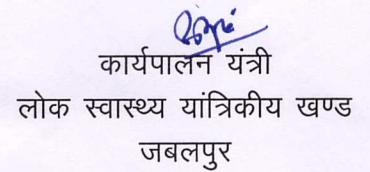 कार्यपालन यंत्री
लोक स्वास्थ्य यांत्रिकीय खण्ड
जबलपुर